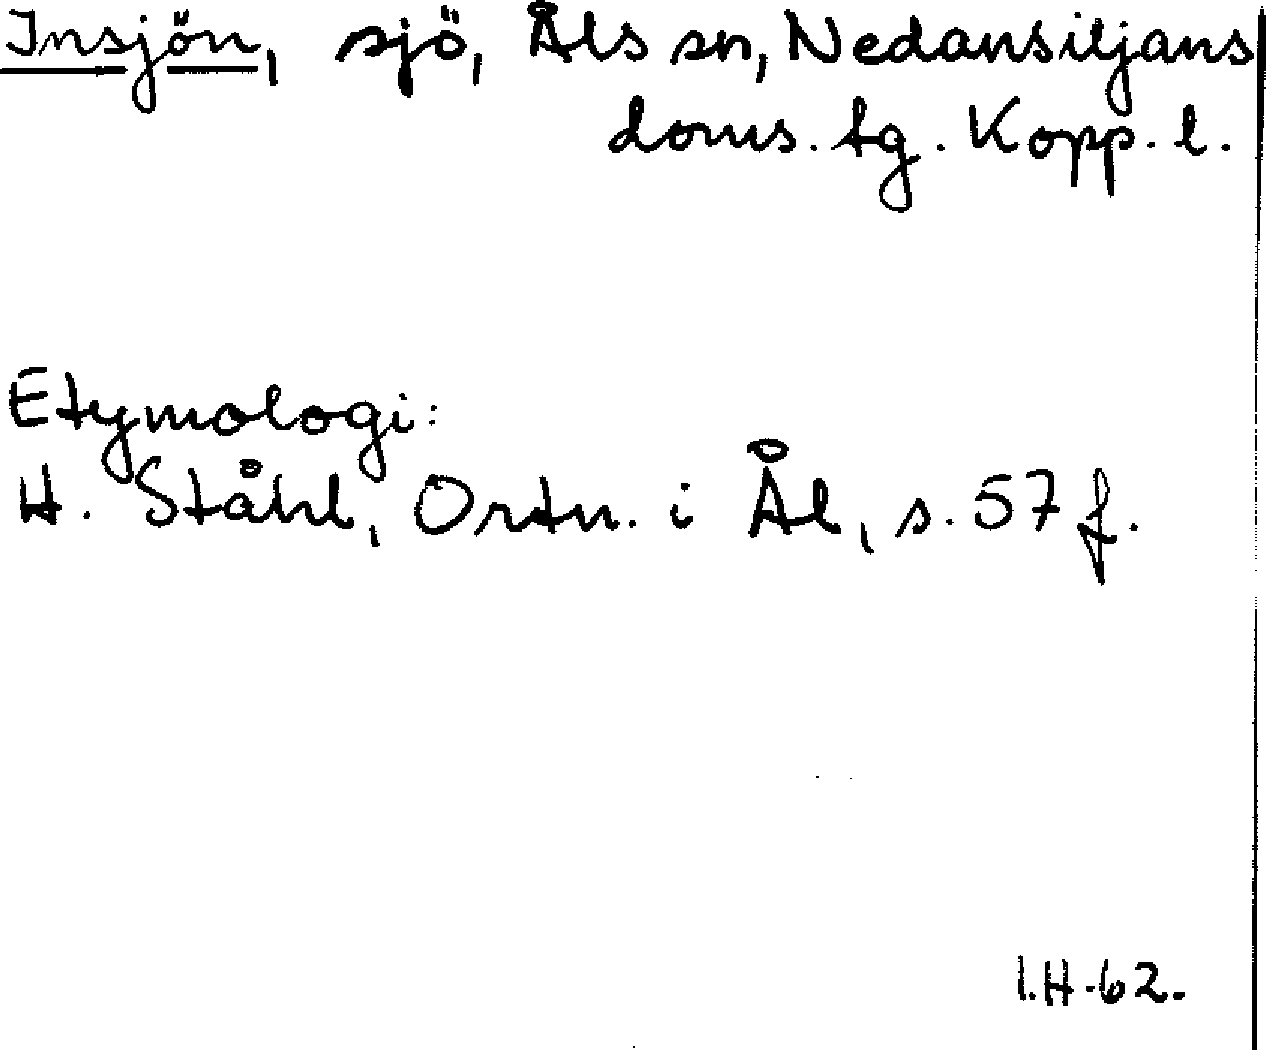 Insjön, sjö, Åls sn, Nedansiljans
doms. tg. Kopp. l.
Etymologi:
H. Ståhl, Ortn. i Ål, s. 57 f.
I.H-62.